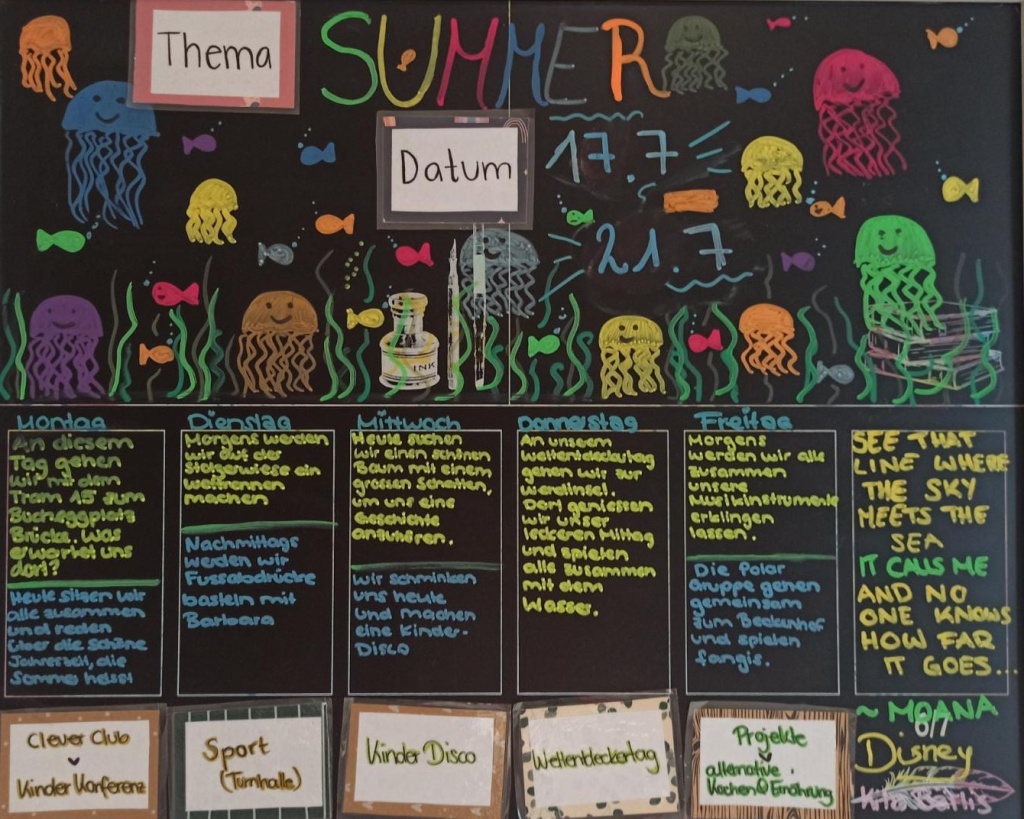 Thema
SUMMER
Datum
17.7
21.7
INK
Montag
An diesem
Tag gehen
wir mit dem
Tram 15 zum
Bucheggplatz
Brücke. Was
erwartet uns
dort?
Heute sitzen wir
alle zusammen
und reden
über die schöne
Jahreszeit, die
Sommer heisst
Dienstag
Morgens werden
wir auf der
Stolzewiese ein
wettrennen
machen
Nachmittags
werden wir
Fussabdrücke
basteln mit
Barbara
Mittwoch
Heute suchen
wir einen schönen
Baum mit einem
grossen Schatten,
um uns eine
Geschichte
anzuhören.
Wir schminken
uns heute
und machen
eine Kinder-
Disco
Donnerstag
An unserem
weltentdeckertag
gehen wir zur
werdinsel.
Dort geniessen
wir unser
leckeren Mittag
und spielen
alle zusammen
mit dem
Wasser.
Freitag
Morgens
werden wir alle
zusammen
unsere
Musikinstrumente
erklingen
lassen.
Die Polar
Gruppe gehen
gemeinsam
zum Beckenhof
und spielen
fangis.
SEE THAT
LINE WHERE
THE SKY
MEETS THE
SEA
IT CALLS ME
AND NO
ONE KNOWS
HOW FAR
IT GOES...
~ MOANA
6/7
Disney
Clever Club
Kinder Konferenz
Sport
(Turnhalle)
Kinder Disco
Weltentdeckertag
Projekte
alternative
Kochen & Ernährung